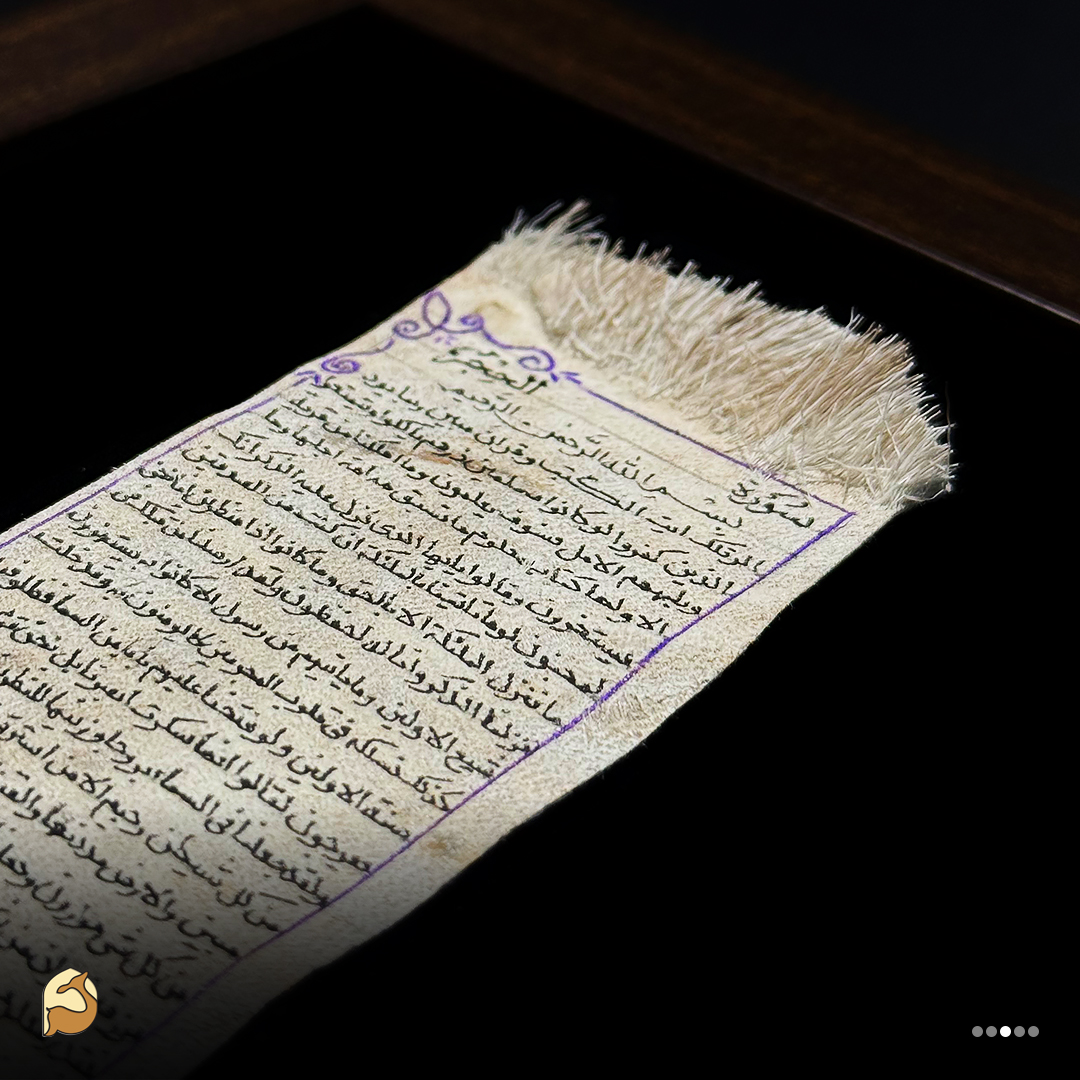 سورة الحجر
بسم الله الرحمن الرحيم
الر تلك ايت الكتب وقران مبين ربما يود
الذين كفروا لو كانوا مسلمين ذرهم ياكلوا ويتمتعوا
ويلههم الامل فسوف يعلمون وما اهلكنا من قرية
الا ولها كتاب معلوم ما تسبق من امة اجلها وما
يستخرون وقالوا يايها الذي نزل عليه الذكر انك
لمجنون لو ما تاتينا بالملئكة ان كنت من الصدقين
ما ننزل الملئكة الا بالحق وما كانوا اذا منظرين انا نحن
نزلنا الذكر وانا له لحفظون ولقد ارسلنا من قبلك في
شيع الاولين وما ياتيهم من رسول الا كانوا به يستهزون
كذلك نسلكه في قلوب المجرمين لا يومنون به وقد خلت
سنة الاولين ولو فتحنا عليهم بابا من السما فظلوا فيه
يعرجون لقالوا انما سكرت ابصرنا بل نحن قوم
ولقد جعلنا في السماء بروجا وزينها للنظرين
من كل شيطن رجيم الا من استرق
مبين والارض مددنها
من كل شي موزون